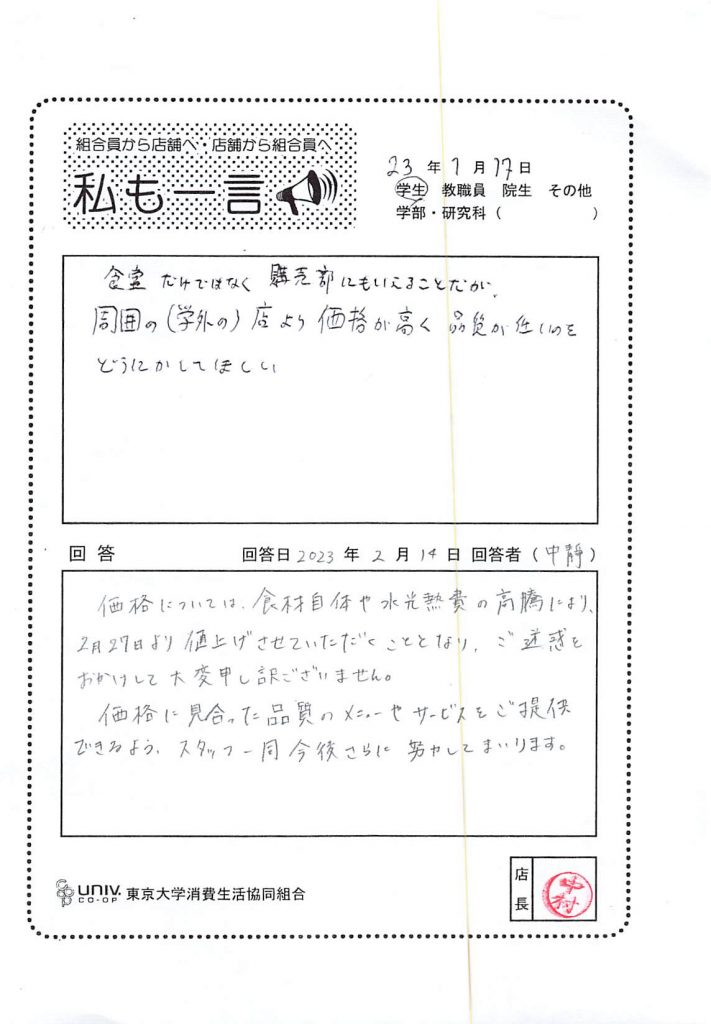 組合員から店舗へ・店舗から組合員へ
私も一言
23 年 1 月 17 日
学生 教職員 院生 その他
学部・研究科（ ）
食堂だけではなく 購売部にもいえることだが、
周囲の（学外の）店より価格が高く 品質が低いのを
どうにかしてほしい
回答 回答日 2023 年 2 月 14 日 回答者（中靜）
価格については、食材自体や水光熱費の高騰により、
2月27日より値上げさせていただくこととなり、ご迷惑を
おかけして大変申し訳ございません。
価格に見合った品質のメニューやサービスをご提供
できるよう、スタッフ一同今後さらに努力してまいります。
UNIV. CO-OP 東京大学消費生活協同組合
店長
中村